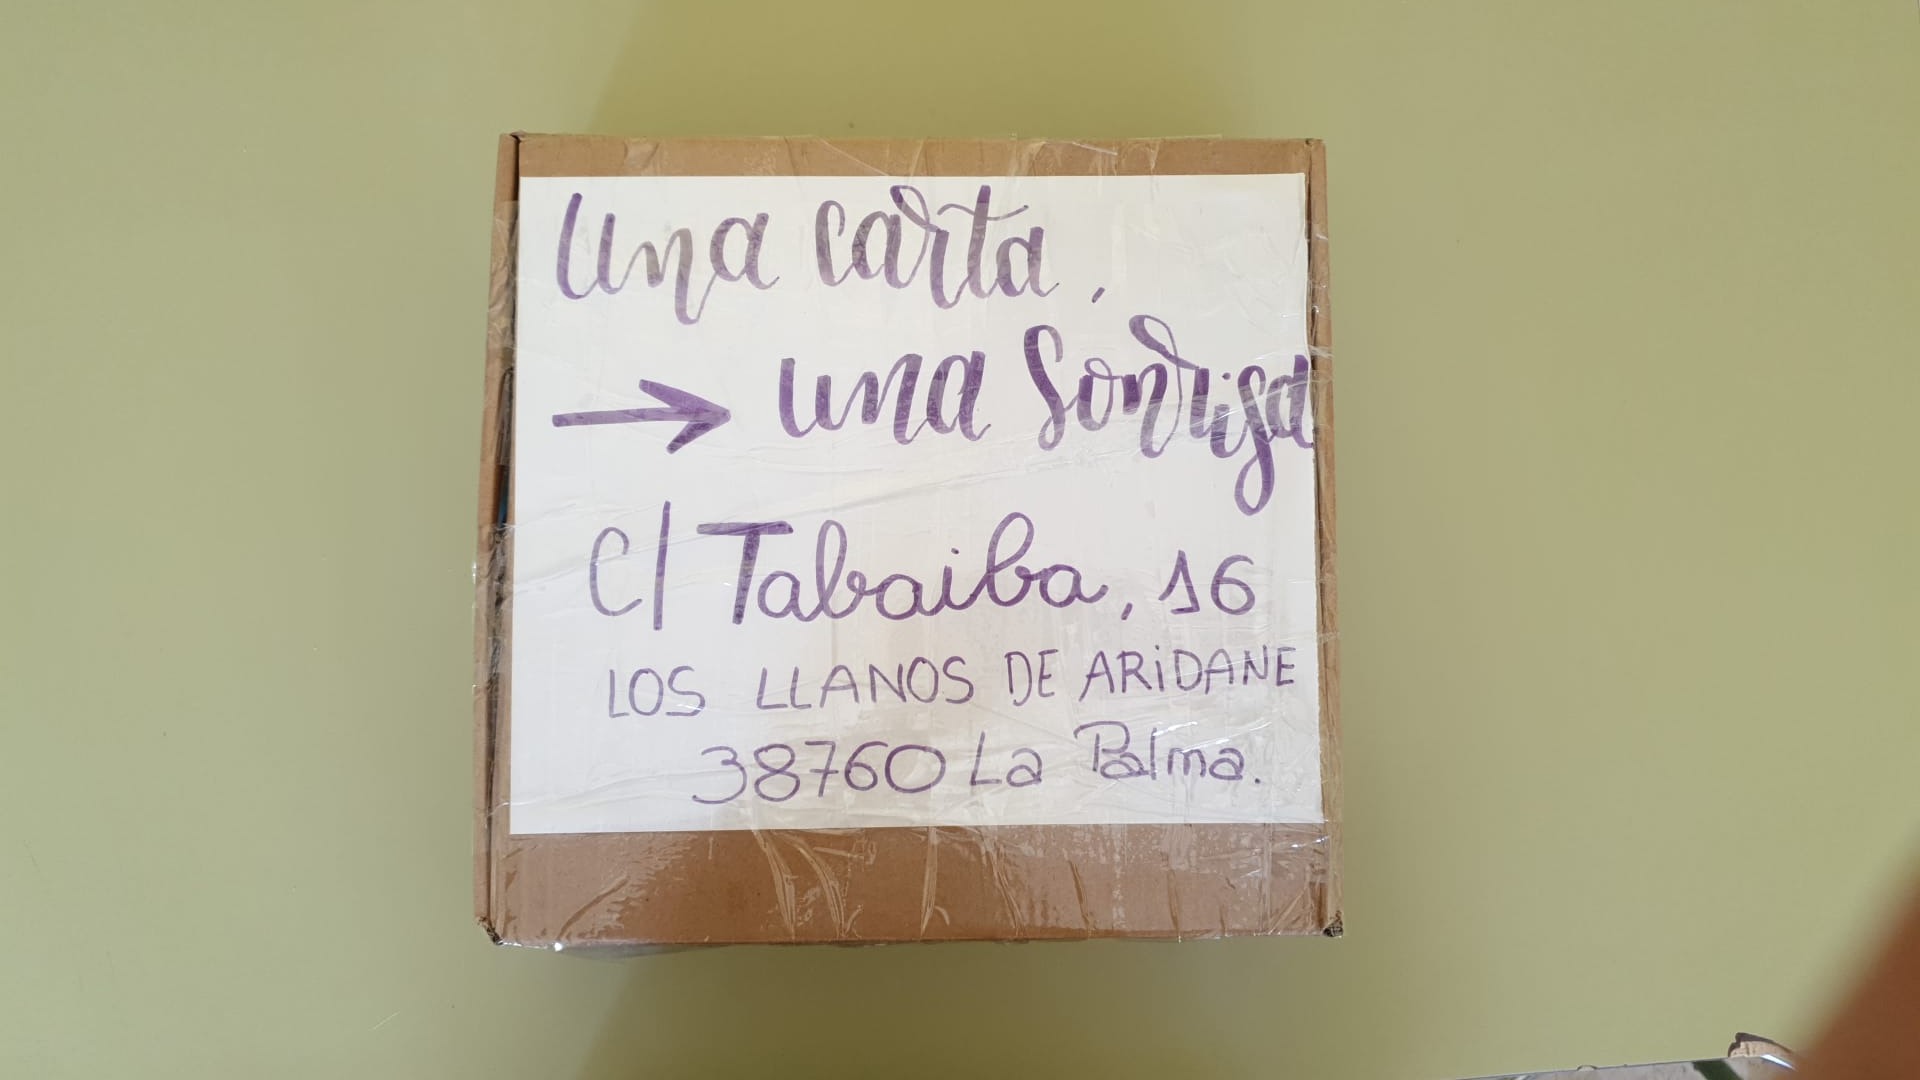 Una carta,
→ una sonrisa
C/ Tabaiba, 16
LOS LLANOS DE ARiDANE
38760 La Palma.